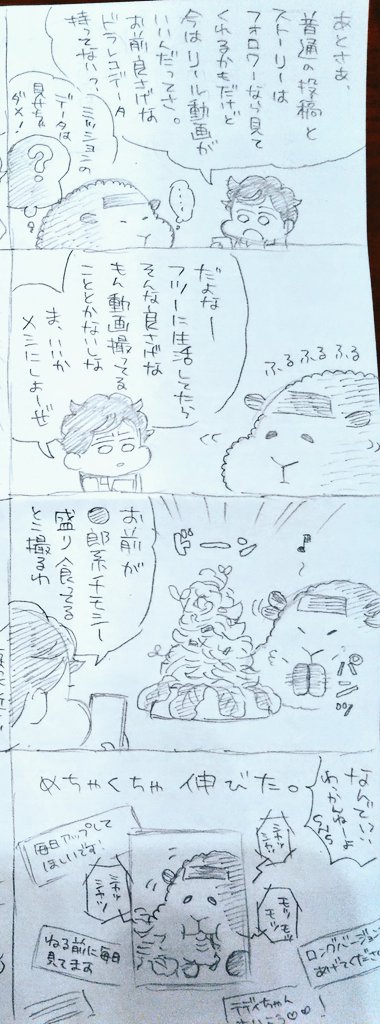 あとさぁ、
普通の投稿と
ストーリーは
フォロワーなら見て
くれるかもだけど
今はリール動画が
いいんだってさ。
お前良さげな
ドラレコデータ
持ってない?
ミッションの
データは
見せちゃ
ダメ!
?
だよなー
フツーに生活してたら
そんな良さげな
もん動画撮ってる
こととかないしな
ま、いいか
メシにしよーぜ
ふるふるふる
お前が
●郎系チモシー
盛り食ってる
とこ撮るわ
ドーン
♪
パンッ
めちゃくちゃ伸びた。
なんで!?
わっかんねーよ
SNS
毎日アップして
ほしいです!
ねる前に毎日
見てます
モッモッ
ロングバージョン
あげてください
テディちゃん